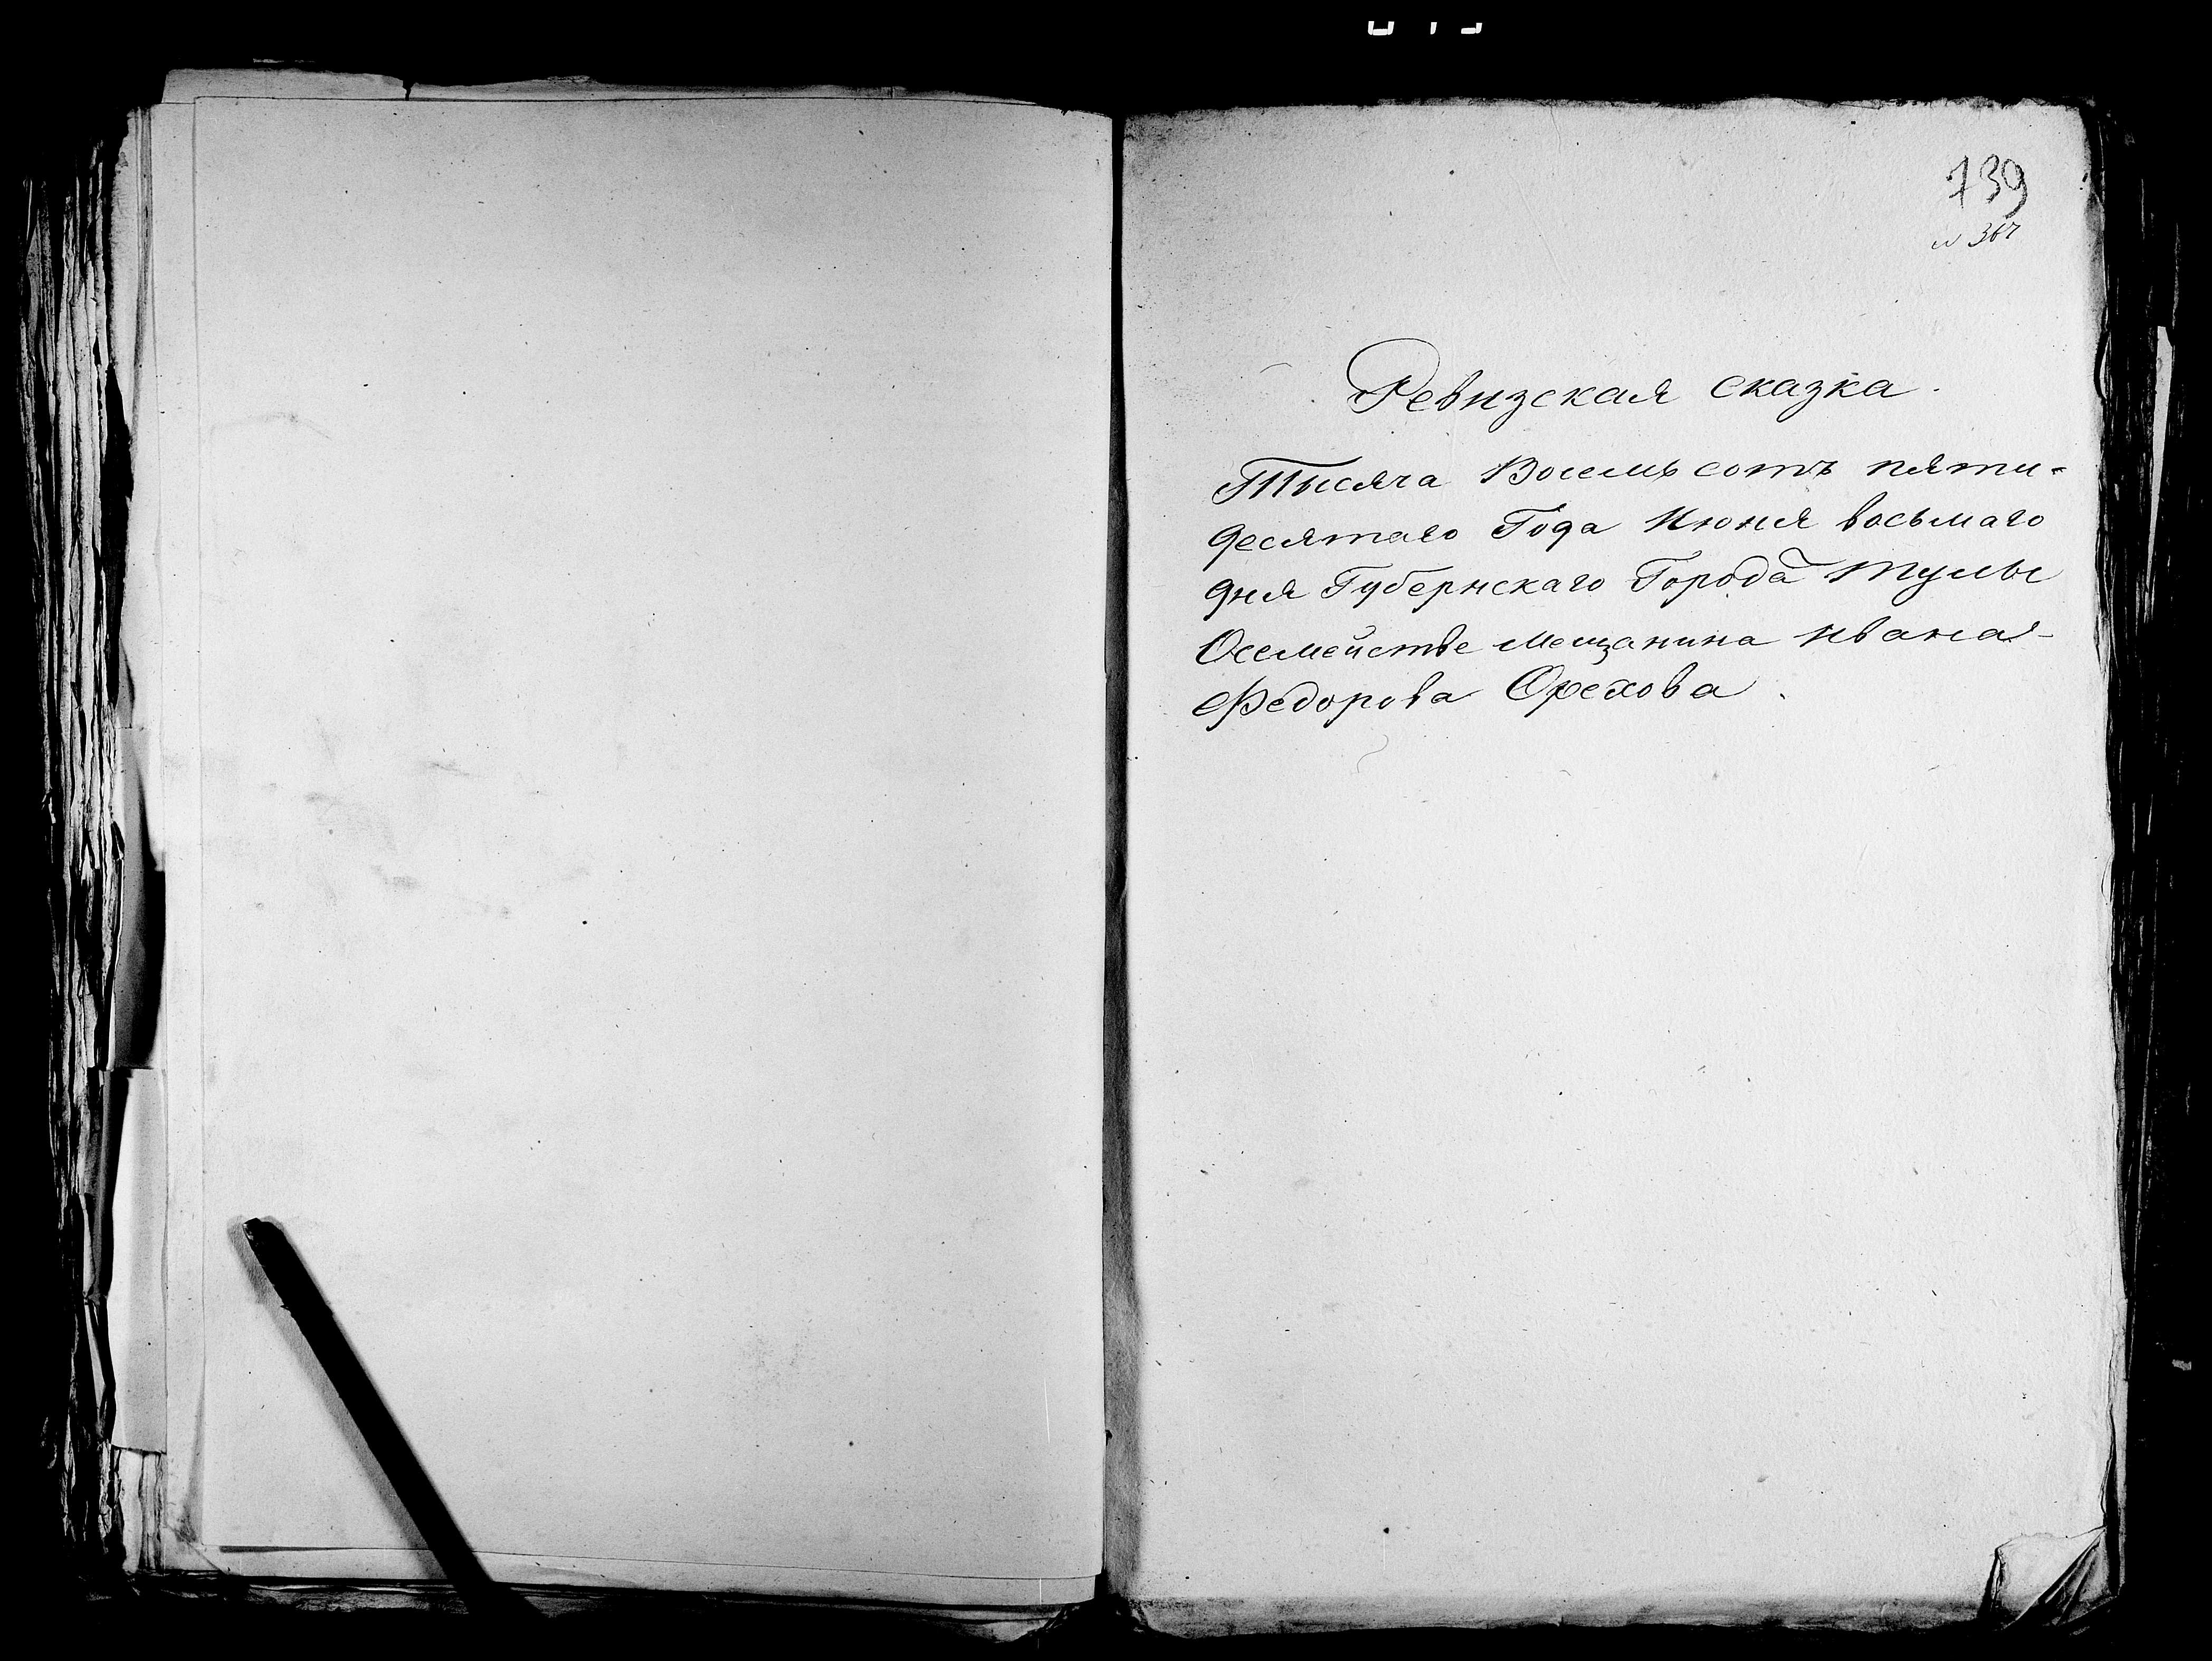 739
№ 367
Ревизская сказка.
Тысяча Восемь сотъ пяти-
десятаго Года Июня восьмаго
дня Губернскаго Города Тулы
Осемействе мещанина Ивана-
Федорова Орехова.